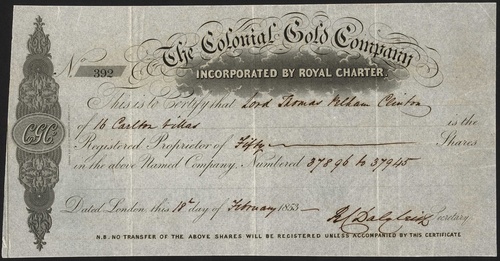 The Colonial Gold Company
No 392
INCORPORATED BY ROYAL CHARTER
This is to Certify that Lord Thomas Pelham Clinton
of 16 Carlton Villas is the
Registered Proprietor of Fifty Shares
in the above Named Company, Numbered 37896 to 37945
C.G.Co.
Dated London, this 18th day of February 1853
Secretary.
N.B. NO TRANSFER OF THE ABOVE SHARES WILL BE REGISTERED UNLESS ACCOMPANIED BY THIS CERTIFICATE